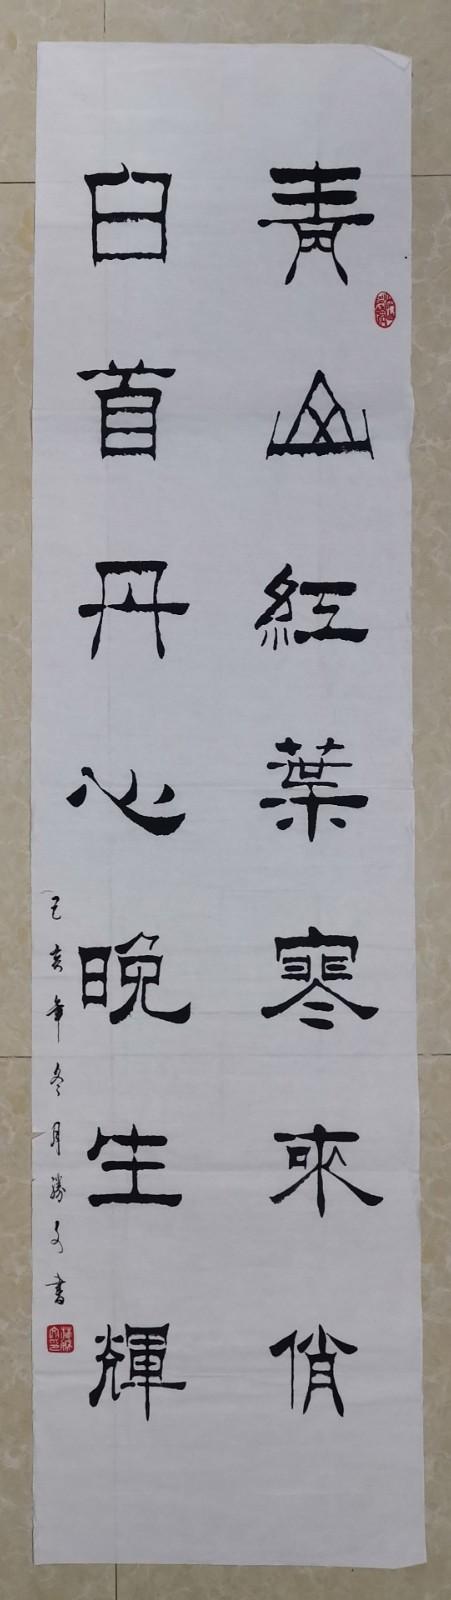 青山紅葉寒來俏
白首丹心晚生輝
己亥年冬月勝文書